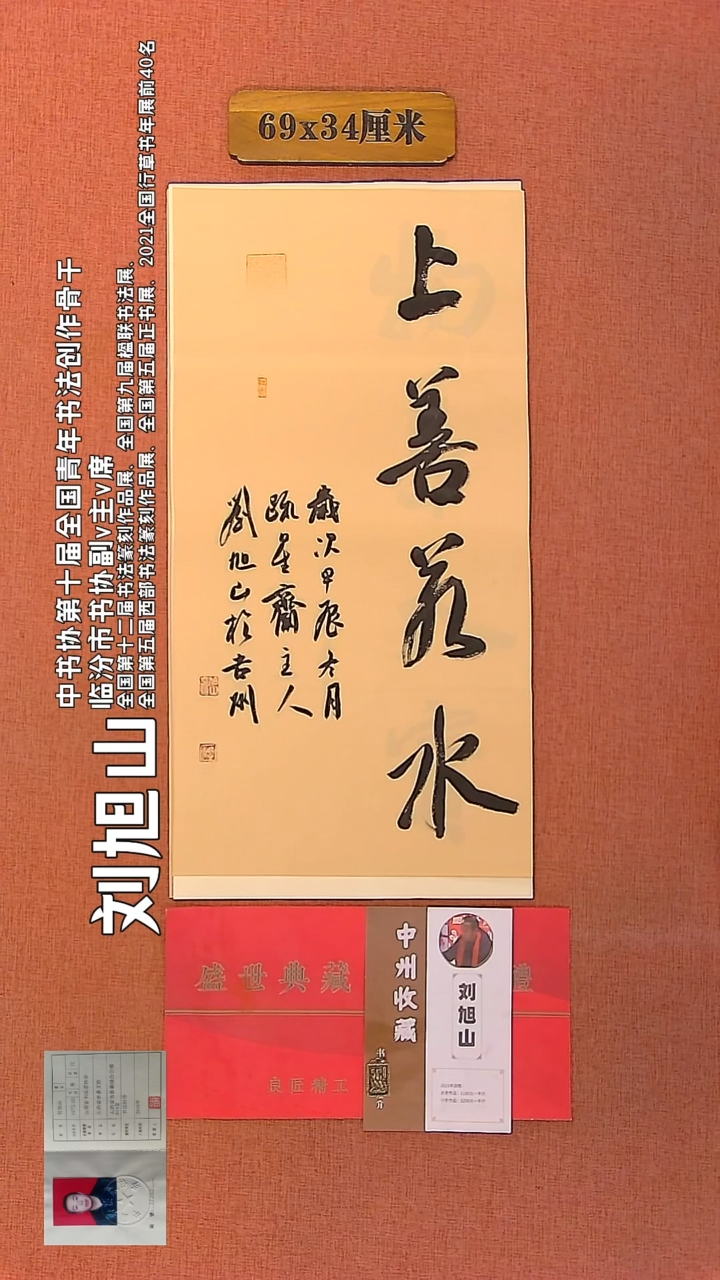 69x34厘米
上善若水
歳次甲辰冬月
疏星齋主人
劉旭山於吉州
刘旭山
中书协第十届全国青年书法创作骨干
临汾市书协副v主v席
全国第十二届书法篆刻作品展、全国第九届楹联书法展、
全国第五届西部书法篆刻作品展、全国第五届正书展、2021全国行草书年展前40名
盛世典藏
良匠精工
中州收藏
刘旭山